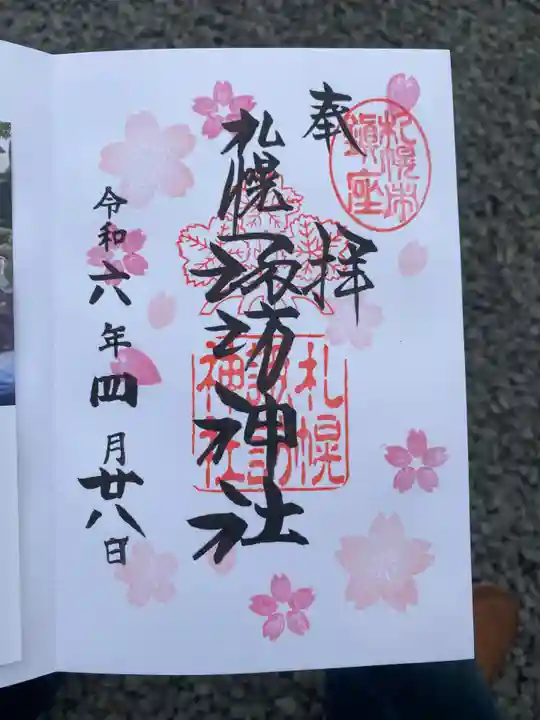 奉拝
札幌市
鎮座
札幌諏訪神社
札幌
諏訪
神社
令和六年四月廿八日